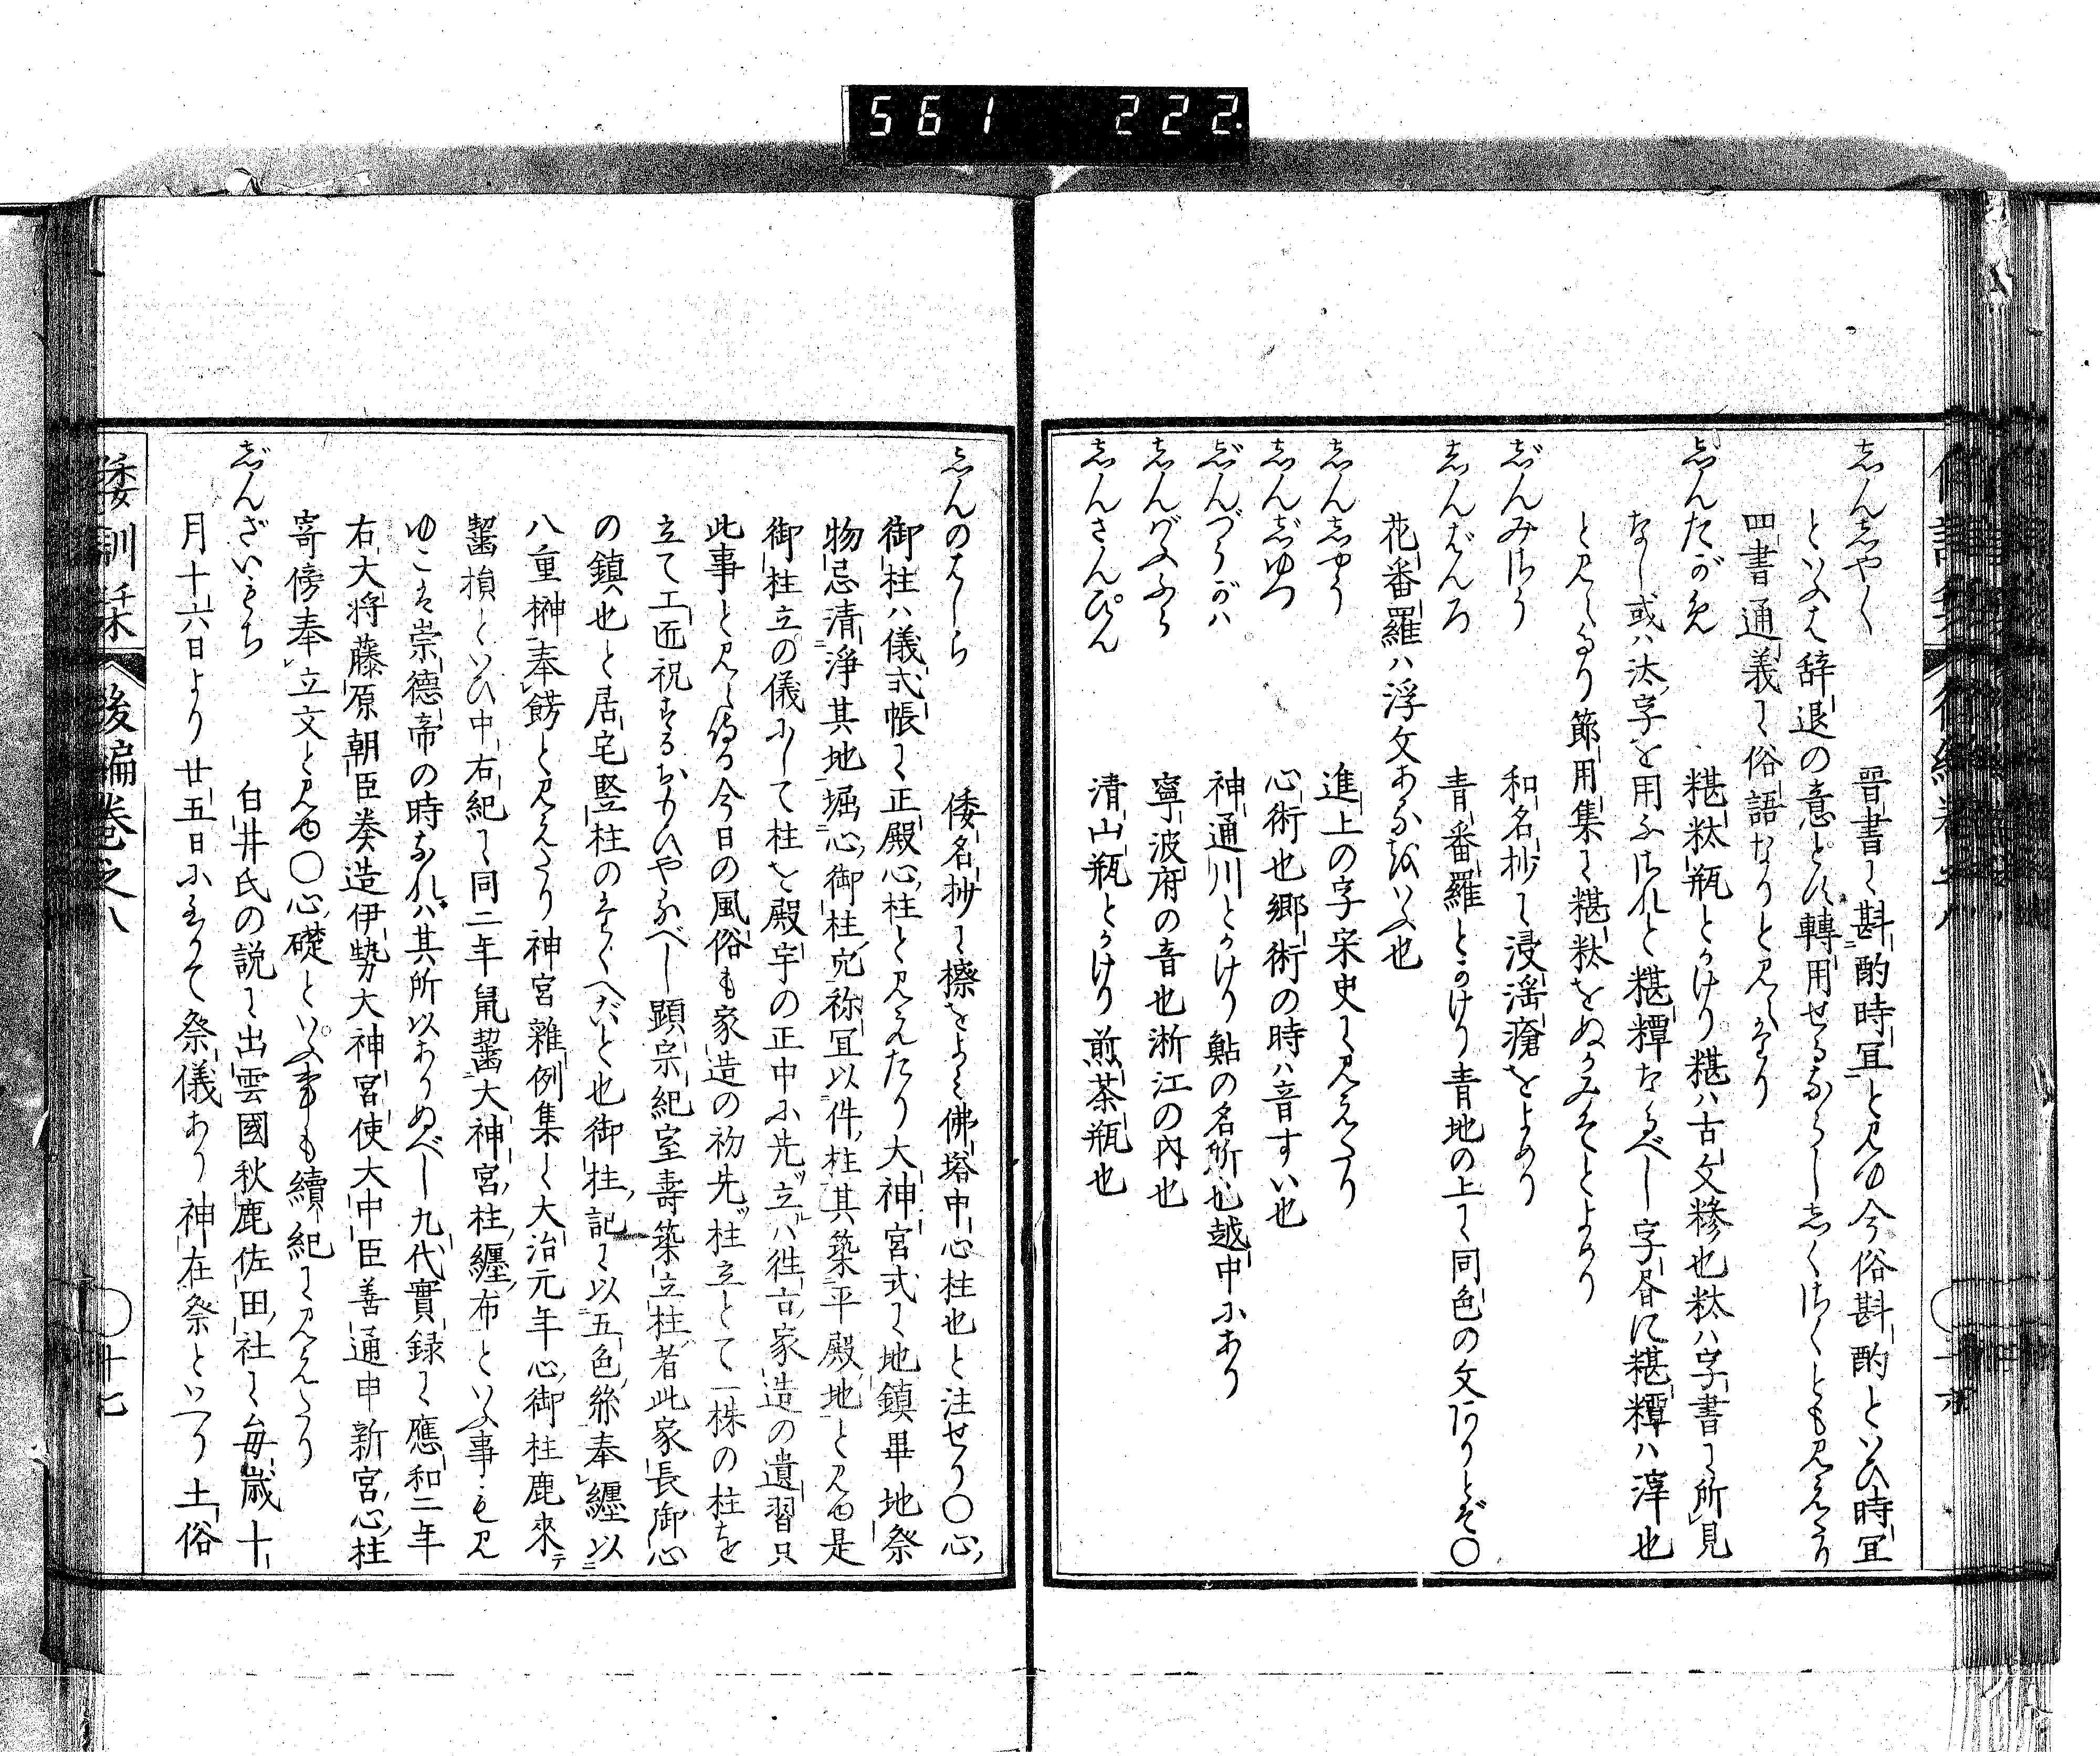 561 222
志ん志やく 晉書に斟酌時宜と見ゆ今俗斟酌といひ時宜
といふは辞退の意とす轉用せるなるべし志くはくとも見えたり
四書通義に俗語なりと見えたり
志んたがめ 糂粏瓶とかけり糂ハ古文糝也粏ハ字書に所見
なし或ハ汰字を用ふされど糂糧なるべし字昝に糂糧ハ滓也
と見えたり節用集に糂粏をぬかみそとよめり
じんみさう 和名抄に浸淫瘡をよめり
志んはんろ 青番羅とかけり青地の上に同色の文ありとぞ〇
花番羅ハ浮文あるをいふ也
志ん志やう 進上の字宋史に見えたり
志んじゆつ 心術也郷術の時ハ音すい也
じんづうがハ 神通川とかけり鮎の名所也越中にあり
志んがふふう 寧波府の音也淅江の内也
志んさんぴん 清山瓶とかけり煎茶瓶也
志んのはしら 倭名抄に檫をよみ佛塔中心柱也と注せり〇心
御柱ハ儀式帳に正殿心柱と見えたり大神宮式に地鎮畢地祭
物忌清淨其地堀心御柱穴祢宜以件柱其築平殿地と見ゆ是
御柱立の儀にして柱を殿宇の正中に先立ハ徃古家造の遺習只
此事と見え侍る今日の風俗も家造の初先柱立とて一株の柱を
立て工匠祝するおもひやるべし顕宗紀室壽築立柱者此家長御心
の鎮也と居宅竪柱のすくへだと也御柱記に以五色絲奉纒以
八重榊奉餝と見えたり神宮雜例集に大治元年心御柱鹿來テ
齧損といひ中右紀に同二年鼠齧大神宮柱纒布といふ事も見
ゆこは崇德帝の時なれハ其所以ありぬべし九代實録に應和二年
右大将藤原朝臣奏造伊勢大神宮使大中臣善通申新宮心柱
寄傍奉立文と見ゆ〇心礎といふ事も續紀に見えたり
じんざいもち 白井氏の説に出雲國秋鹿佐田社に毎歳十
月十六日より廿五日にいたりて祭儀あり神在祭といへり土俗
倭訓栞 後編卷之八 〇十七